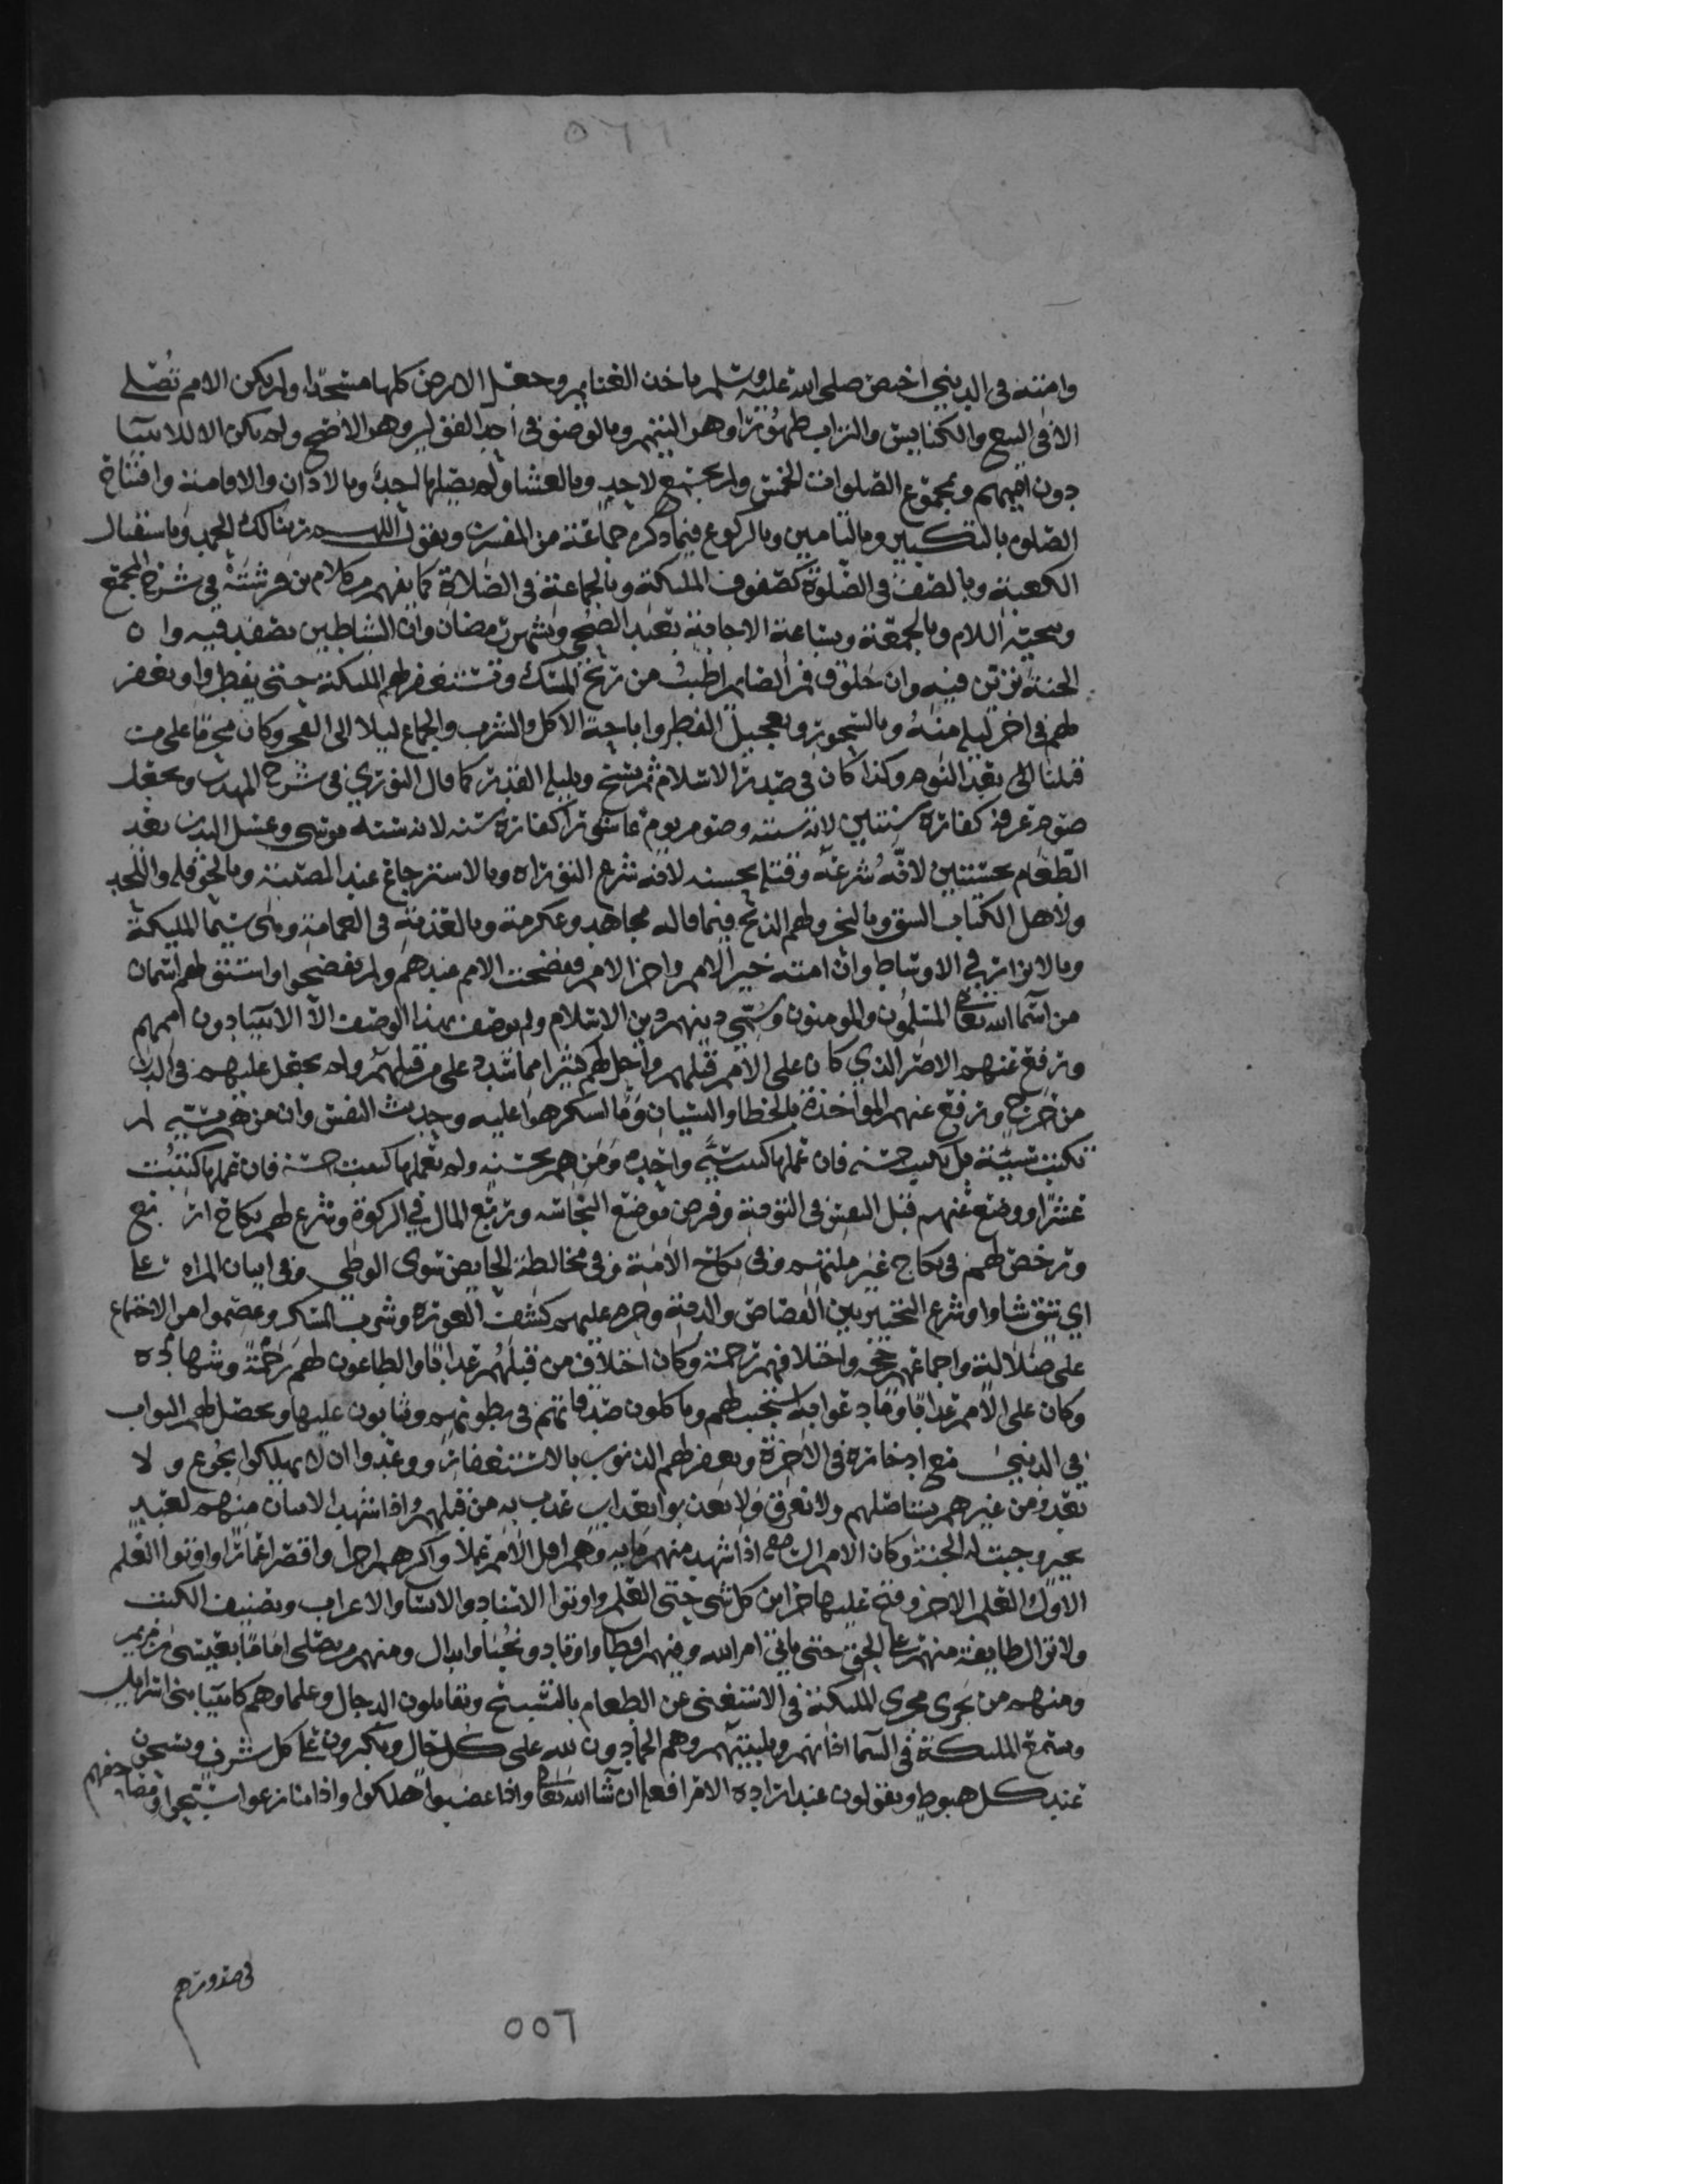 ٥٦٦
وامته في الدنيا اختص صلى الله عليه وسلم باخذ الغنايم وجعل الارض كلها مسجدا ولم يكن الامم تصلي
الا في البيع والكنايس والتراب طهورا وهو التيمم وبالوضو في احد القولين وهو الاصح ولم يكن الا للانبيا
دون اممهم وبمجموع الصلوات الخمس ولم تجتمع لاحد وبالعشا ولم يصلها احد وبالاذان والاقامة وافتتاح
الصلوة بالتكبير وبالتامين وبالركوع فيما ذكره جماعة من المفسرين وبقول اللهم ربنا لك الحمد وباستقبال
الكعبة وبالصف في الصلوة كصفوف المليكة وبالجماعة في الصلاة كما يفهم من كلام بن فرشته في شرح المجمع
وبتحية السلام وبالجمعة وبساعة الاجابة وبعيد الاضحى وبشهر رمضان وان الشياطين تصفد فيه وان
الجنة تزين فيه وان خلوف فم الصايم اطيب من ريح المسك وتستغفر لهم المليكة حتى يفطروا ويغفر
لهم في اخر ليلة منه وبالسحور وتعجيل الفطر واباحة الاكل والشرب والجماع ليلا الى الفجر وكان محرما على من
قبلنا الى بعد النوم وكذا كان في صدر الاسلام ثم نسخ وبليلة القدر كما قال النووي في شرح المهذب وبجعل
صوم عرفة كفارة سنتين لانه سنته وصوم يوم عاشورا كفارة سنة لانه سنة موسى وغسل اليدين بعد
الطعام بحسنتين لانه شرعه وقبله بحسنه لانه شرع التوراه وبالاسترجاع عند المصيبة وبالحوقله واللحد
ولاهل الكتاب الشق وبالنحر ولهم الذبح فيما قاله مجاهد وعكرمة وبالعذبة في العمامة وهي سيما المليكة
وبالاتزار في الاوساط وان امته خير الامم واخر الامم ففضحت الامم عندهم ولم يفضحوا واشتق لهم اسمان
من اسما الله تعالى المسلمون والمومنون وسمي دينهم دين الاسلام ولم يوصف بهذا الوصف الا الانبيا دون اممهم
ورفع عنهم الاصر الذي كان على الامم قبلهم واحل لهم كثيرا مما شدد على من قبلهم ولم يجعل عليهم في الدين
من حرج ورفع عنهم المواخذة بالخطا والنسيان وما استكرهوا عليه وحديث النفس وان من هم بسيئة لم
تكتب سيئة بل تكتب حسنة فان عملها كتبت سيئة واحده ومن هم بحسنه ولم يعملها كتبت حسنة فان عملها كتبت
عشرا ووضع عنهم قتل النفس في التوبة وقرض موضع النجاسه وربع المال في الزكوة وشرع لهم نكاح اربع
ورخص لهم في نكاح غير ملتهم وفي نكاح الامة وفي مخالطة الحايض سوى الوطي وفي اتيان المراه على
اي شق شاوا وشرع التخيير بين القصاص والدية وحرم عليهم كشف العورة وشرب المسكر وعصموا من الاجتماع
على ضلالة واجماعهم حجة واختلافهم رحمة وكان اختلاف من قبلهم عذابا والطاعون لهم رحمة وشهاده
وكان على الامم عذابا وما دعوا به استجيب لهم وياكلون صدقاتهم في بطونهم ويثابون عليها ويحصل لهم الثواب
في الدنيا مع ادخاره في الاخرة ويغفر لهم الذنوب بالاستغفار ووعدوا ان لا يهلكوا بجوع ولا
بعدو من غيرهم يستاصلهم ولا بغرق ولا يعذبوا بعذاب عذب به من قبلهم واذا شهد الاثنان منهم لعبد
بخير وجبت له الجنة وكان الامم السالفة اذا شهد منهم مايه وهم اقل الامم عملا واكثرهم اجرا واقصر اعمارا واوتوا العلم
الاول والعلم الاخر وفتح عليها خزاين كل شي حتى العلم واوتوا الاسناد والانساب والاعراب وتصنيف الكتب
ولا تزال طايفة منهم على الحق حتى ياتي امر الله وفيهم اقطاب واوتاد ونجبا وابدال ومنهم من يصلي اماما بعيسى بن مريم
ومنهم من يجرى مجرى المليكة في الاستغنى عن الطعام بالتسبيح ويقاتلون الدجال وعلماوهم كانبيا بني اسرايل
وتسمع المليكة في السما اذانهم وتلبيتهم وهم الحمادون لله على كل حال ويكبرون على كل شرف ويسبحون
عند كل هبوط ويقولون عند ارادة الامر افعل ان شا الله تعالى واذا غضبوا هللوا واذا تنازعوا سبحوا ومصاحفهم
في صدورهم
٥٥٦